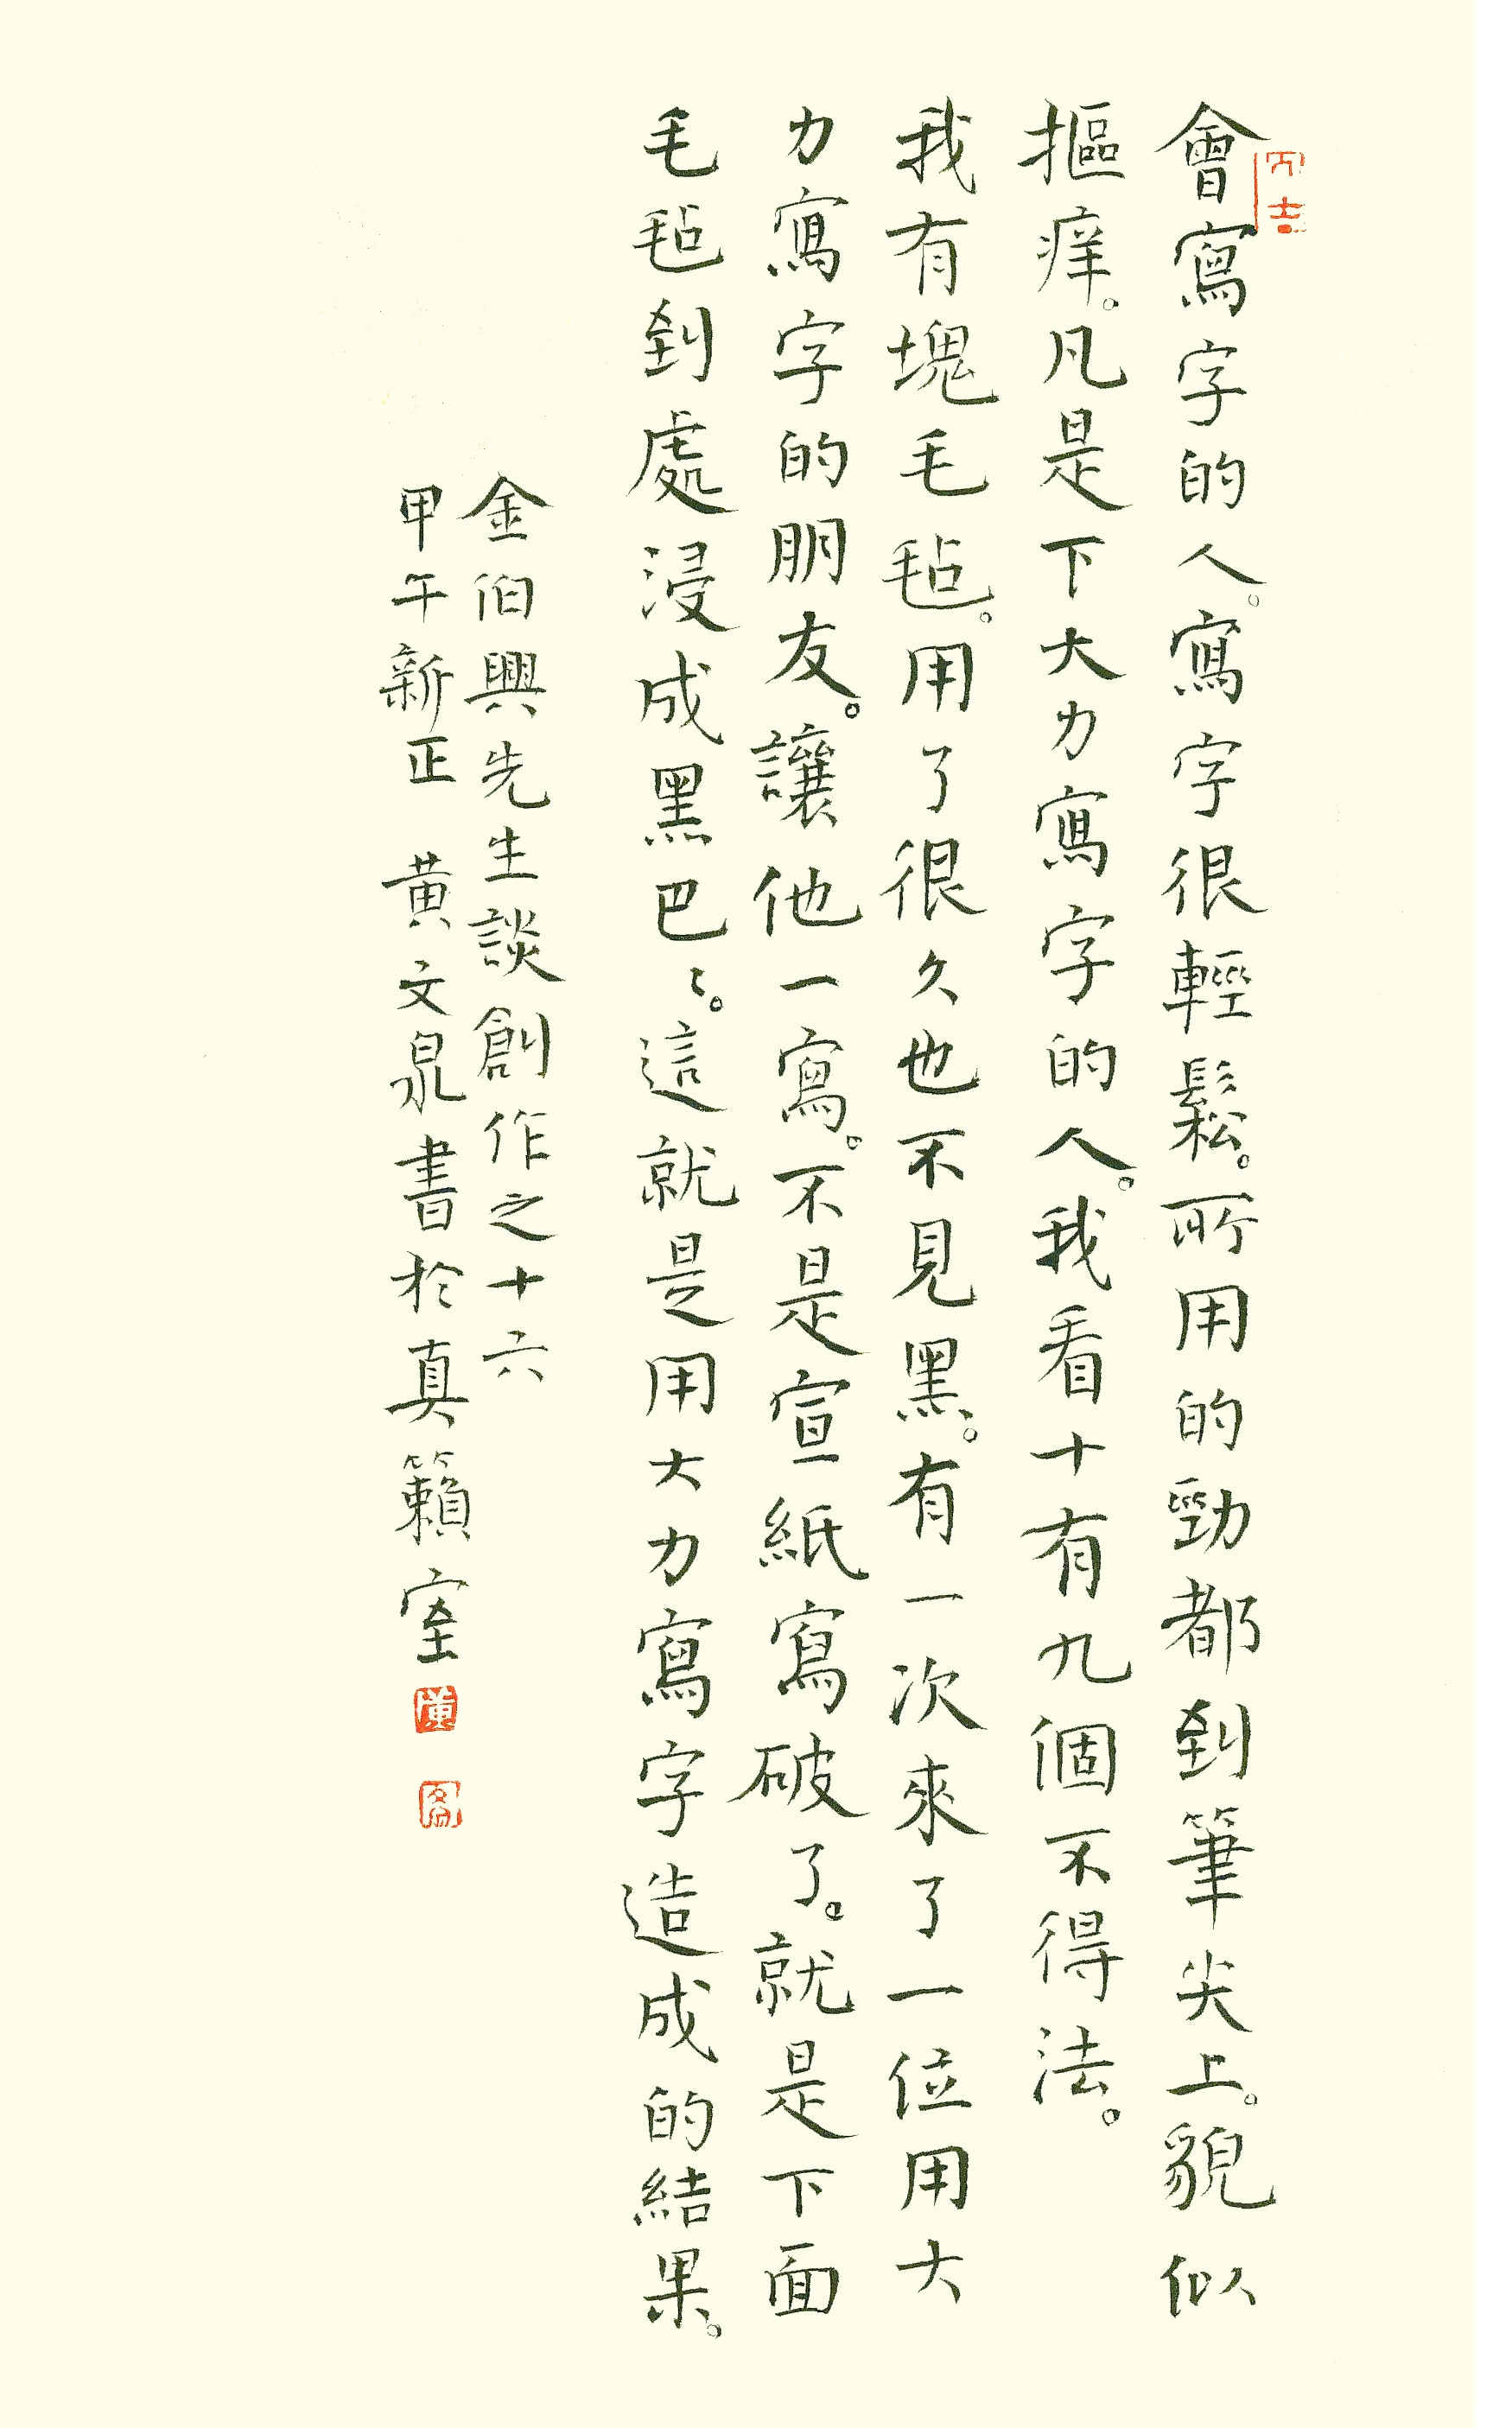 會寫字的人。寫字很輕鬆。所用的勁都到筆尖上。貌似
摳痒。凡是下大力寫字的人。我看十有九個不得法。
我有塊毛毡。用了很久也不見黑。有一次來了一位用大
力寫字的朋友。讓他一寫。不是宣紙寫破了。就是下面
毛毡到處浸成黑巴〻。這就是用大力寫字造成的結果。
金伯興先生談創作之十六
甲午新正 黄文泉書於真籟室